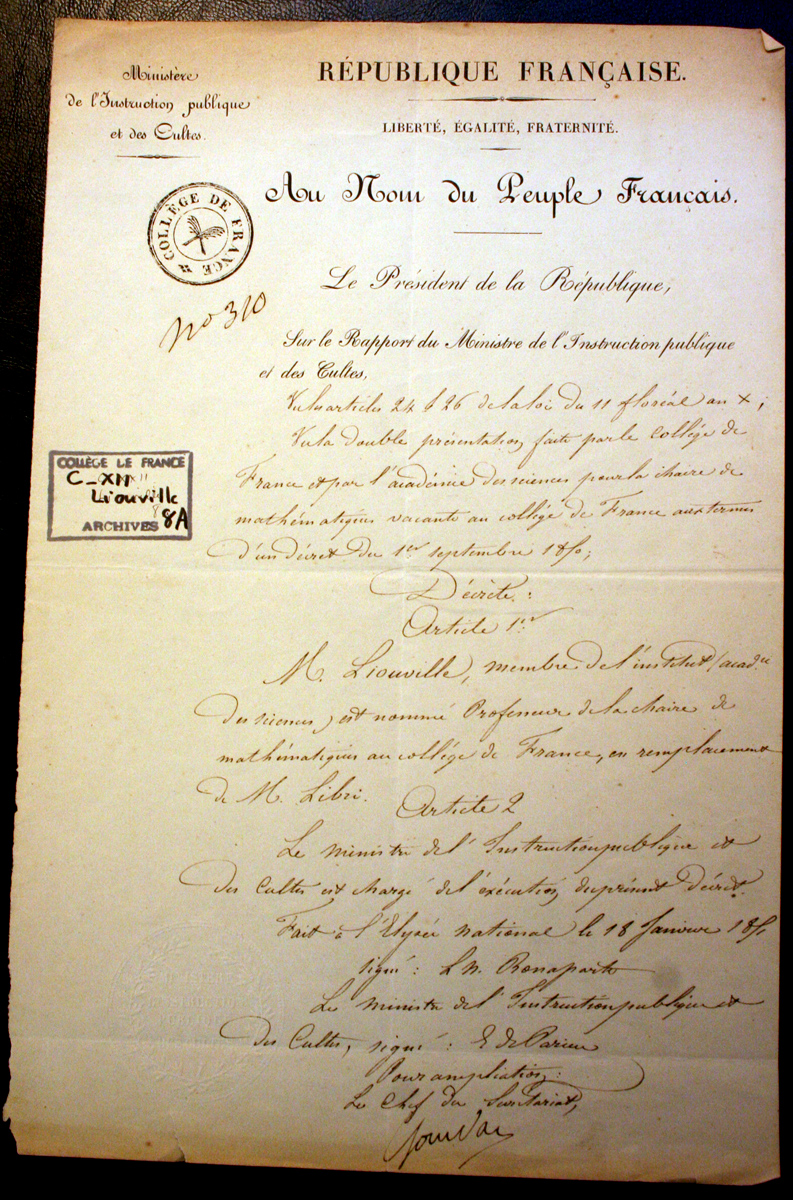 Ministère
de l'Instruction publique
et des Cultes.
RÉPUBLIQUE FRANÇAISE.
LIBERTÉ, ÉGALITÉ, FRATERNITÉ.
Au Nom du Peuple Français.
COLLÈGE DE FRANCE
No 310
Le Président de la République,
Sur le Rapport du Ministre de l'Instruction publique
et des Cultes,
Vu les articles 24 & 26 de la loi du 11 floréal an X ;
Vu la double présentation faite par le Collége de
France et par l'académie des sciences pour la chaire de
mathématiques vacante au collége de France aux termes
d'un décret du 1er septembre 1850 ;
COLLÈGE DE FRANCE
C-XII
Liouville
8A
ARCHIVES
Décrète :
Article 1er
M. Liouville, membre de l'institut (acad.ie
des sciences) est nommé Professeur de la chaire de
mathématiques au collége de France, en remplacement
de M. Libri.
Article 2
Le ministre de l'Instruction publique et
des Cultes est chargé de l'exécution du présent Décret.
Fait à l'Elysée national le 18 Janvier 1851
signé : L N. Bonaparte
Le ministre de l'Instruction publique et
des Cultes, signé : E de Parieu
Pour ampliation :
Le Chef du Secrétariat,